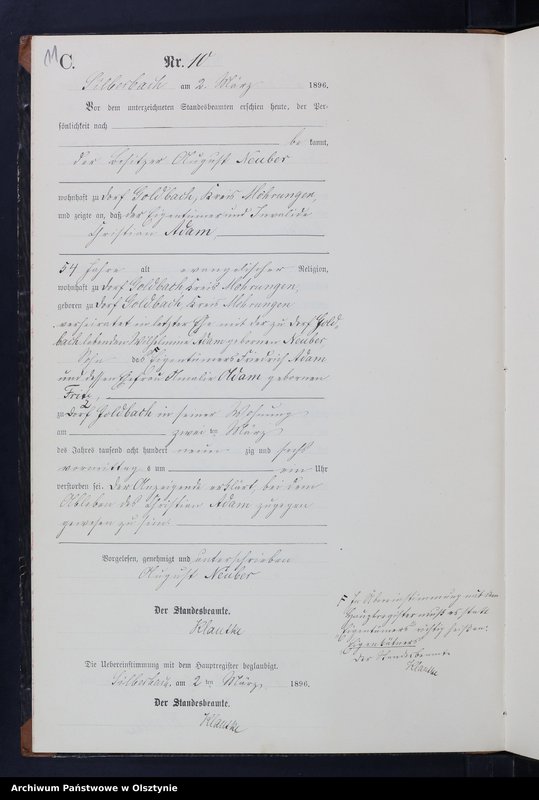 C.
Nr. 10
Silberbach am 2. März 1896.
Vor dem unterzeichneten Standesbeamten erschien heute, der Per-
sönlichkeit nach
be kannt,
der Besitzer August Neuber
wohnhaft zu Dorf Goldbach, Kreis Mohrungen,
und zeigte an, daß der Eigentümer und Invalide
Christian Adam
54 Jahre alt evangelischer Religion,
wohnhaft zu Dorf Goldbach Kreis Mohrungen,
geboren zu Dorf Goldbach, Kreis Mohrungen
verheiratet in letzter Ehe mit der zu Dorf Gold-
bach lebenden Wilhelmine Adam geborenen Neuber,
Sohn des Eigentümers Friedrich Adam
und dessen Ehefrau Amalie Adam geborenen
zu Dorf Goldbach in seiner Wohnung
am zwei ten März
des Jahres tausend acht hundert neun zig und sechs
vormittags um ein Uhr
verstorben sei. Der Anzeigende erklärt, bei dem
Ableben des Christian Adam zugegen
gewesen zu sein.
Vorgelesen, genehmigt und unterschrieben
August Neuber
Der Standesbeamte.
Klautke
Die Uebereinstimmung mit dem Hauptregister beglaubigt.
Silberbach, am 2 ten März 1896.
Der Standesbeamte.
Klautke
In Übereinstimmung mit dem
Hauptregister muß es statt
Eigentümers richtig heißen:
Eigenkätners
Der Standesbeamte
Klautke
Archiwum Państwowe w Olsztynie